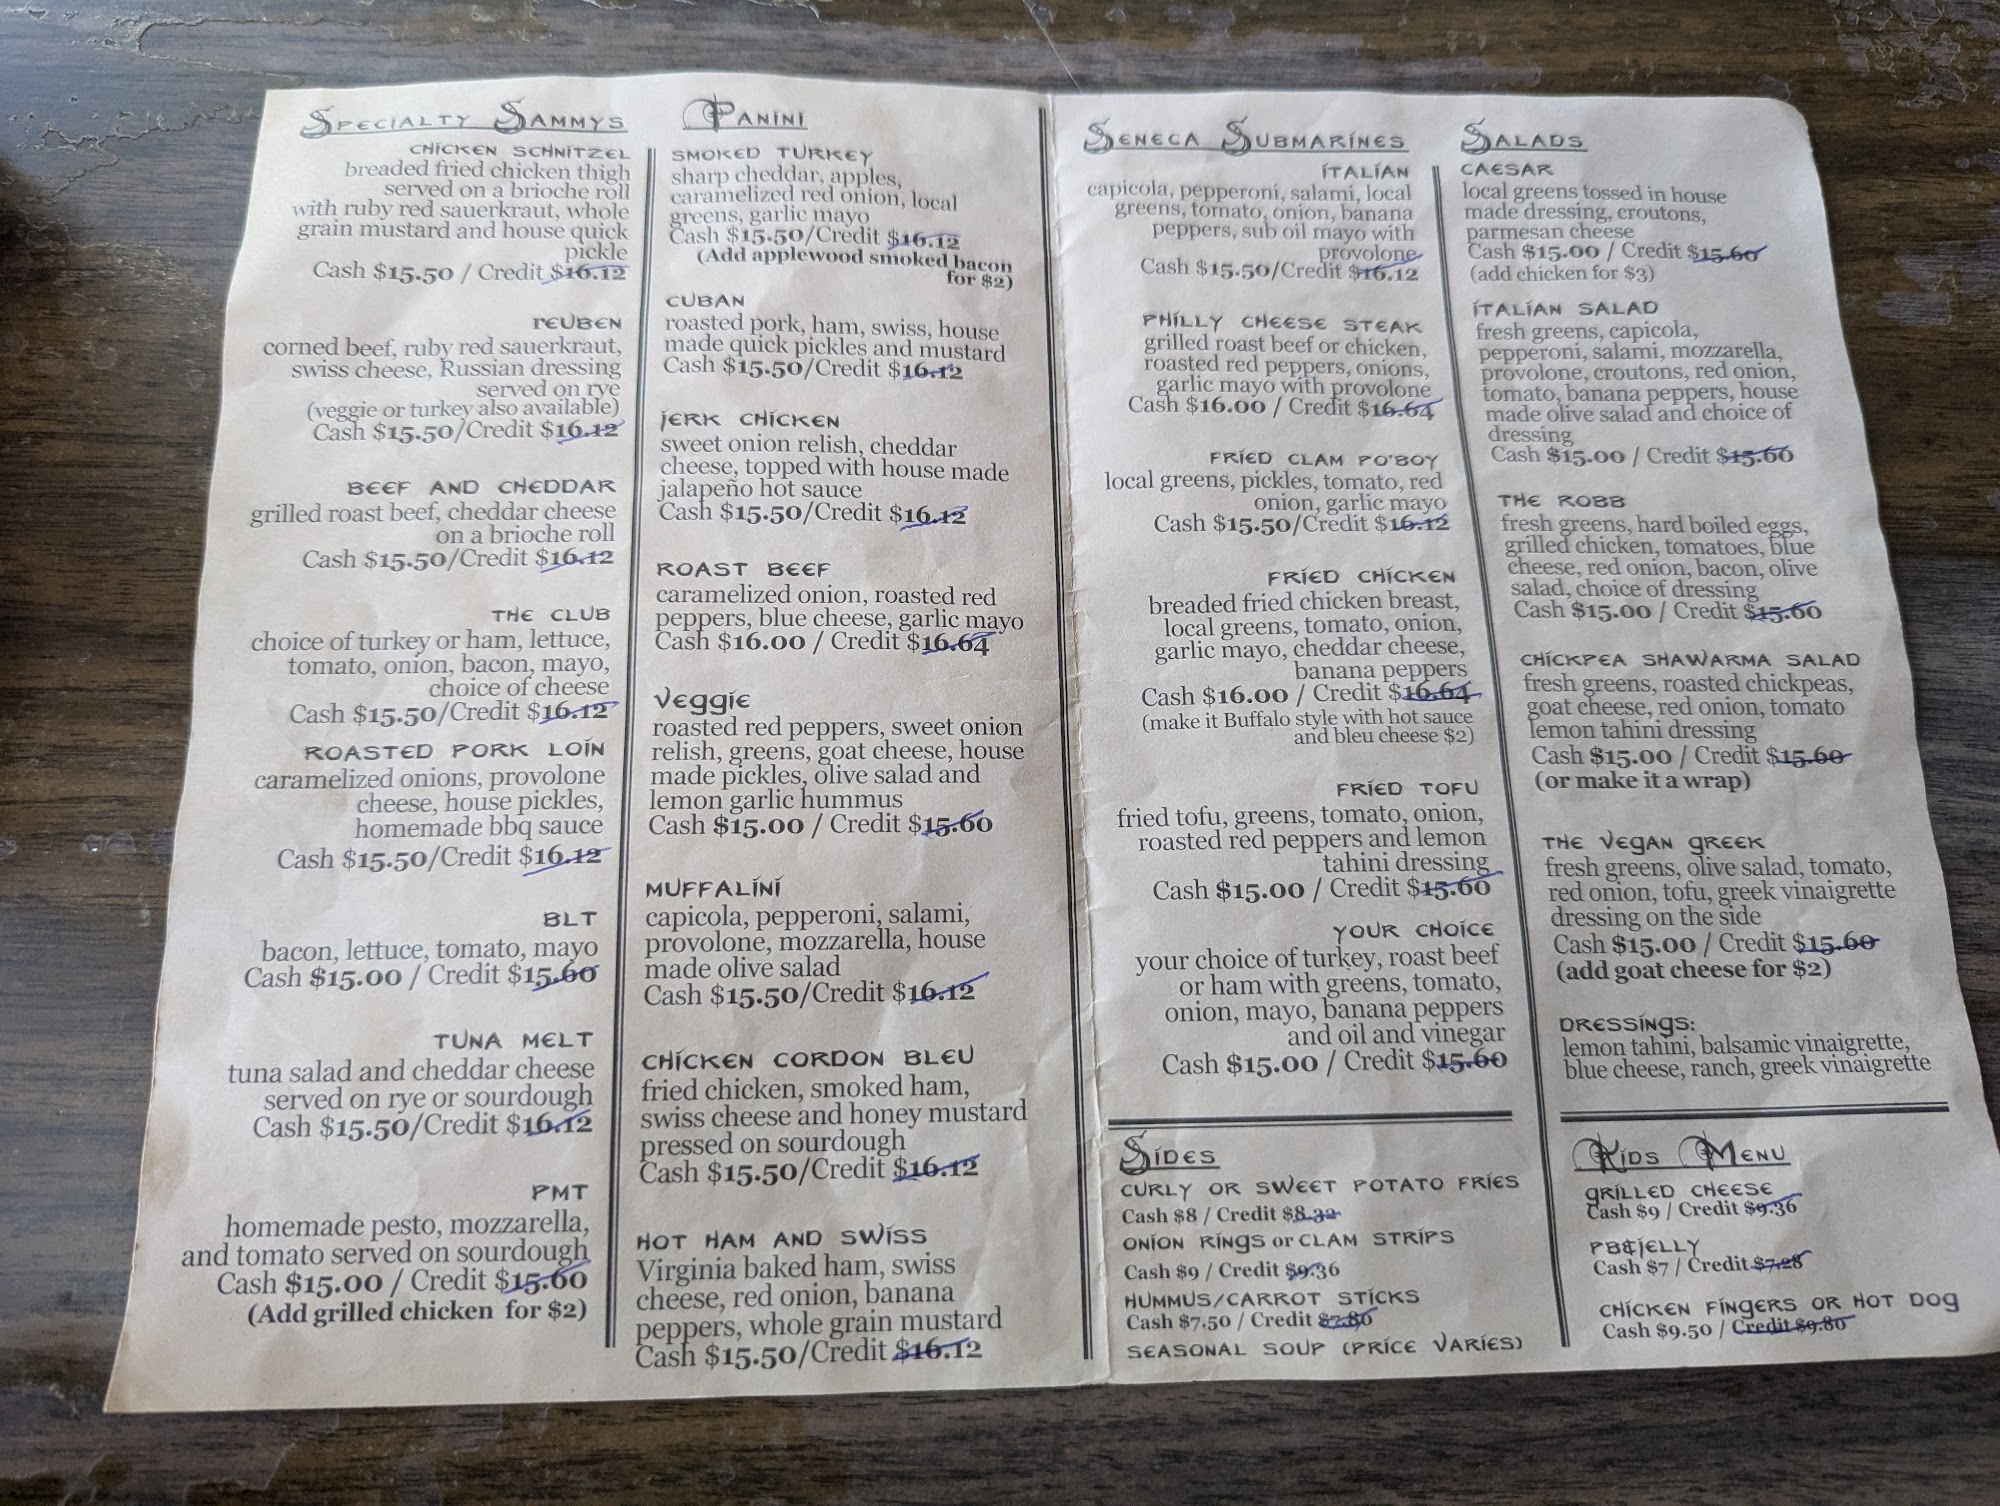 Specialty Sammys
CHICKEN SCHNITZEL
breaded fried chicken thigh
served on a brioche roll
with ruby red sauerkraut, whole
grain mustard and house quick
pickle
Cash $15.50 / Credit $16.12
REUBEN
corned beef, ruby red sauerkraut,
swiss cheese, Russian dressing
served on rye
(veggie or turkey also available)
Cash $15.50/Credit $16.12
BEEF AND CHEDDAR
grilled roast beef, cheddar cheese
on a brioche roll
Cash $15.50/Credit $16.12
THE CLUB
choice of turkey or ham, lettuce,
tomato, onion, bacon, mayo,
choice of cheese
Cash $15.50/Credit $16.12
ROASTED PORK LOIN
caramelized onions, provolone
cheese, house pickles,
homemade bbq sauce
Cash $15.50/Credit $16.12
BLT
bacon, lettuce, tomato, mayo
Cash $15.00 / Credit $15.60
TUNA MELT
tuna salad and cheddar cheese
served on rye or sourdough
Cash $15.50/Credit $16.12
PMT
homemade pesto, mozzarella,
and tomato served on sourdough
Cash $15.00 / Credit $15.60
(Add grilled chicken for $2)
Panini
SMOKED TURKEY
sharp cheddar, apples,
caramelized red onion, local
greens, garlic mayo
Cash $15.50/Credit $16.12
(Add applewood smoked bacon
for $2)
CUBAN
roasted pork, ham, swiss, house
made quick pickles and mustard
Cash $15.50/Credit $16.12
JERK CHICKEN
sweet onion relish, cheddar
cheese, topped with house made
jalapeño hot sauce
Cash $15.50/Credit $16.12
ROAST BEEF
caramelized onion, roasted red
peppers, blue cheese, garlic mayo
Cash $16.00 / Credit $16.64
Veggie
roasted red peppers, sweet onion
relish, greens, goat cheese, house
made pickles, olive salad and
lemon garlic hummus
Cash $15.00 / Credit $15.60
MUFFALINI
capicola, pepperoni, salami,
provolone, mozzarella, house
made olive salad
Cash $15.50/Credit $16.12
CHICKEN CORDON BLEU
fried chicken, smoked ham,
swiss cheese and honey mustard
pressed on sourdough
Cash $15.50/Credit $16.12
HOT HAM AND SWISS
Virginia baked ham, swiss
cheese, red onion, banana
peppers, whole grain mustard
Cash $15.50/Credit $16.12
Seneca Submarines
ITALIAN
capicola, pepperoni, salami, local
greens, tomato, onion, banana
peppers, sub oil mayo with
provolone
Cash $15.50/Credit $16.12
PHILLY CHEESE STEAK
grilled roast beef or chicken,
roasted red peppers, onions,
garlic mayo with provolone
Cash $16.00 / Credit $16.64
FRIED CLAM PO'BOY
local greens, pickles, tomato, red
onion, garlic mayo
Cash $15.50/Credit $16.12
FRIED CHICKEN
breaded fried chicken breast,
local greens, tomato, onion,
garlic mayo, cheddar cheese,
banana peppers
Cash $16.00 / Credit $16.64
(make it Buffalo style with hot sauce
and bleu cheese $2)
FRIED TOFU
fried tofu, greens, tomato, onion,
roasted red peppers and lemon
tahini dressing
Cash $15.00 / Credit $15.60
YOUR CHOICE
your choice of turkey, roast beef
or ham with greens, tomato,
onion, mayo, banana peppers
and oil and vinegar
Cash $15.00 / Credit $15.60
Sides
CURLY OR SWEET POTATO FRIES
Cash $8 / Credit $8.32
ONION RINGS or CLAM STRIPS
Cash $9 / Credit $9.36
HUMMUS/CARROT STICKS
Cash $7.50 / Credit $7.80
SEASONAL SOUP (PRICE VARIES)
Salads
CAESAR
local greens tossed in house
made dressing, croutons,
parmesan cheese
Cash $15.00 / Credit $15.60
(add chicken for $3)
ITALIAN SALAD
fresh greens, capicola,
pepperoni, salami, mozzarella,
provolone, croutons, red onion,
tomato, banana peppers, house
made olive salad and choice of
dressing
Cash $15.00 / Credit $15.60
THE ROBB
fresh greens, hard boiled eggs,
grilled chicken, tomatoes, blue
cheese, red onion, bacon, olive
salad, choice of dressing
Cash $15.00 / Credit $15.60
CHICKPEA SHAWARMA SALAD
fresh greens, roasted chickpeas,
goat cheese, red onion, tomato
lemon tahini dressing
Cash $15.00 / Credit $15.60
(or make it a wrap)
THE VEGAN GREEK
fresh greens, olive salad, tomato,
red onion, tofu, greek vinaigrette
dressing on the side
Cash $15.00 / Credit $15.60
(add goat cheese for $2)
DRESSINGS:
lemon tahini, balsamic vinaigrette,
blue cheese, ranch, greek vinaigrette
Kids Menu
GRILLED CHEESE
Cash $9 / Credit $9.36
PB&JELLY
Cash $7 / Credit $7.28
CHICKEN FINGERS OR HOT DOG
Cash $9.50 / Credit $9.80